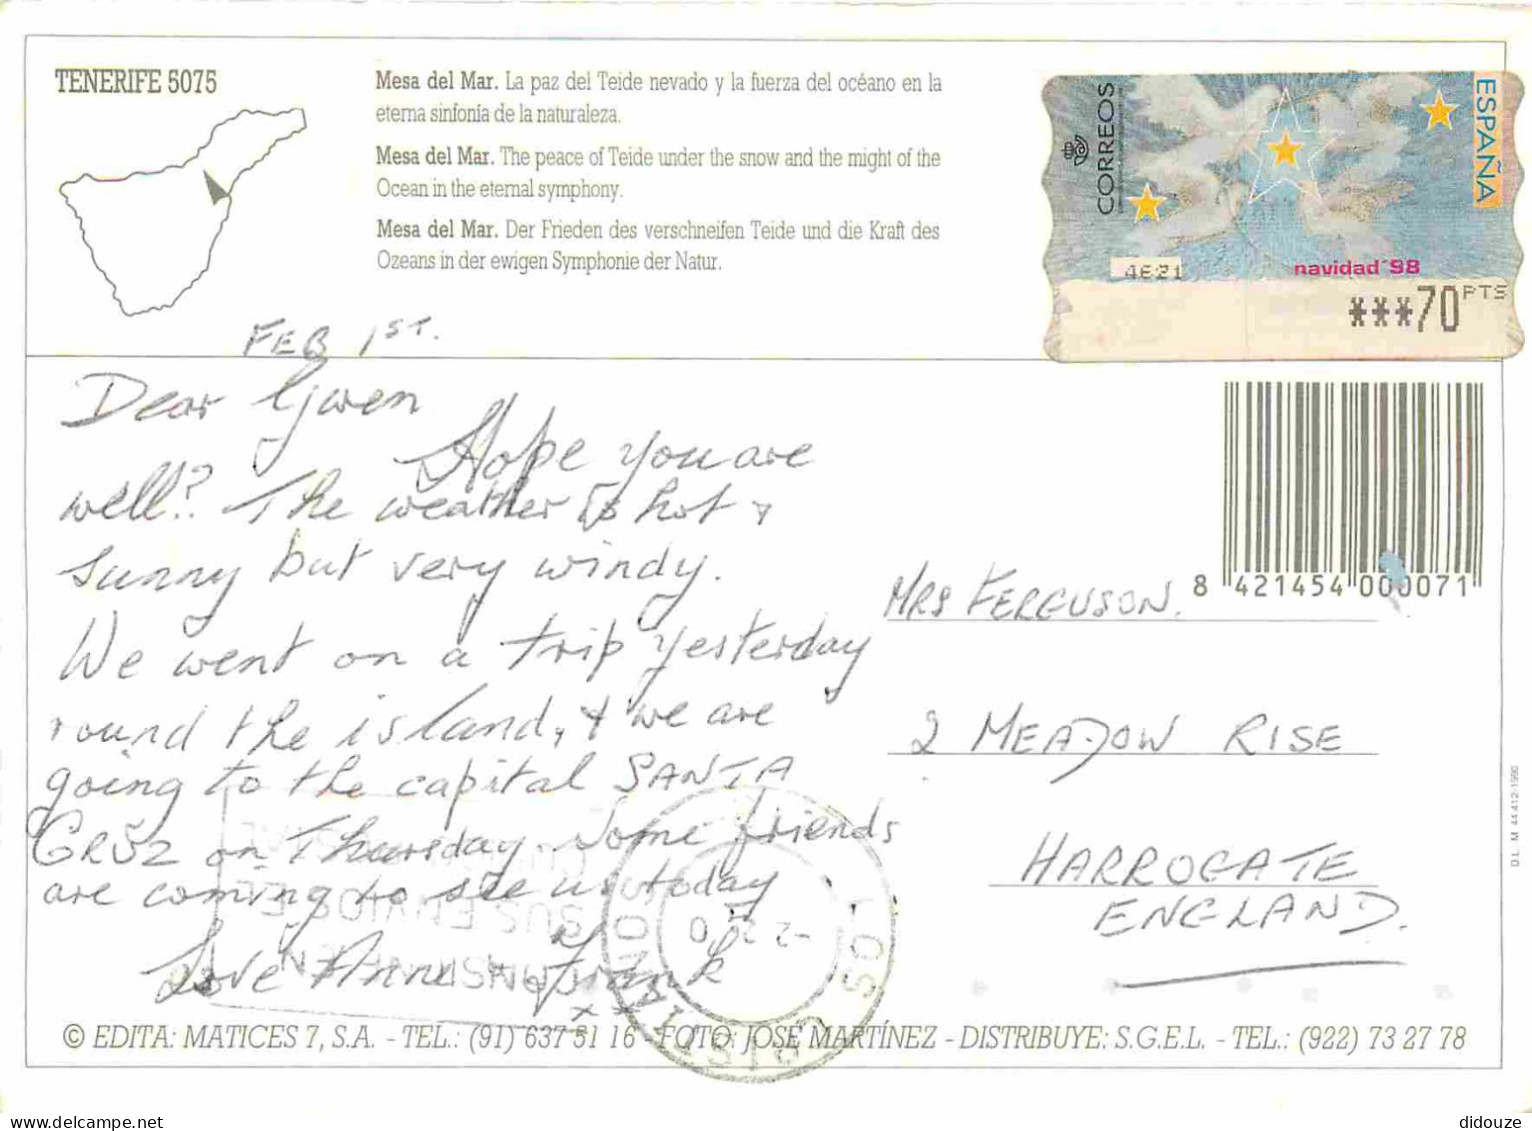 TENERIFE 5075
Mesa del Mar. La paz del Teide nevado y la fuerza del océano en la
eterna sinfonía de la naturaleza.
Mesa del Mar. The peace of Teide under the snow and the might of the
Ocean in the eternal symphony.
Mesa del Mar. Der Frieden des verschneifen Teide und die Kraft des
Ozeans in der ewigen Symphonie der Natur.
CORREOS
ESPAÑA
4621
navidad'98
***70 PTS
FEB 1ST.
Dear Gwen
Hope you are
well? The weather is hot &
sunny but very windy.
We went on a trip yesterday
round the island, & we are
going to the capital SANTA
CRUZ on Thursday. Some friends
are coming to see us today
Love Anne & Frank
x x x
8 421454 000071
MRS FERGUSON.
2 MEADOW RISE
HARROGATE
ENGLAND.
D.L. M 44.412-1990
LOS CRISTIANOS
© EDITA: MATICES 7, S.A. - TEL.: (91) 637 51 16 - FOTO: JOSÉ MARTÍNEZ - DISTRIBUYE: S.G.E.L. - TEL.: (922) 73 27 78
didouze